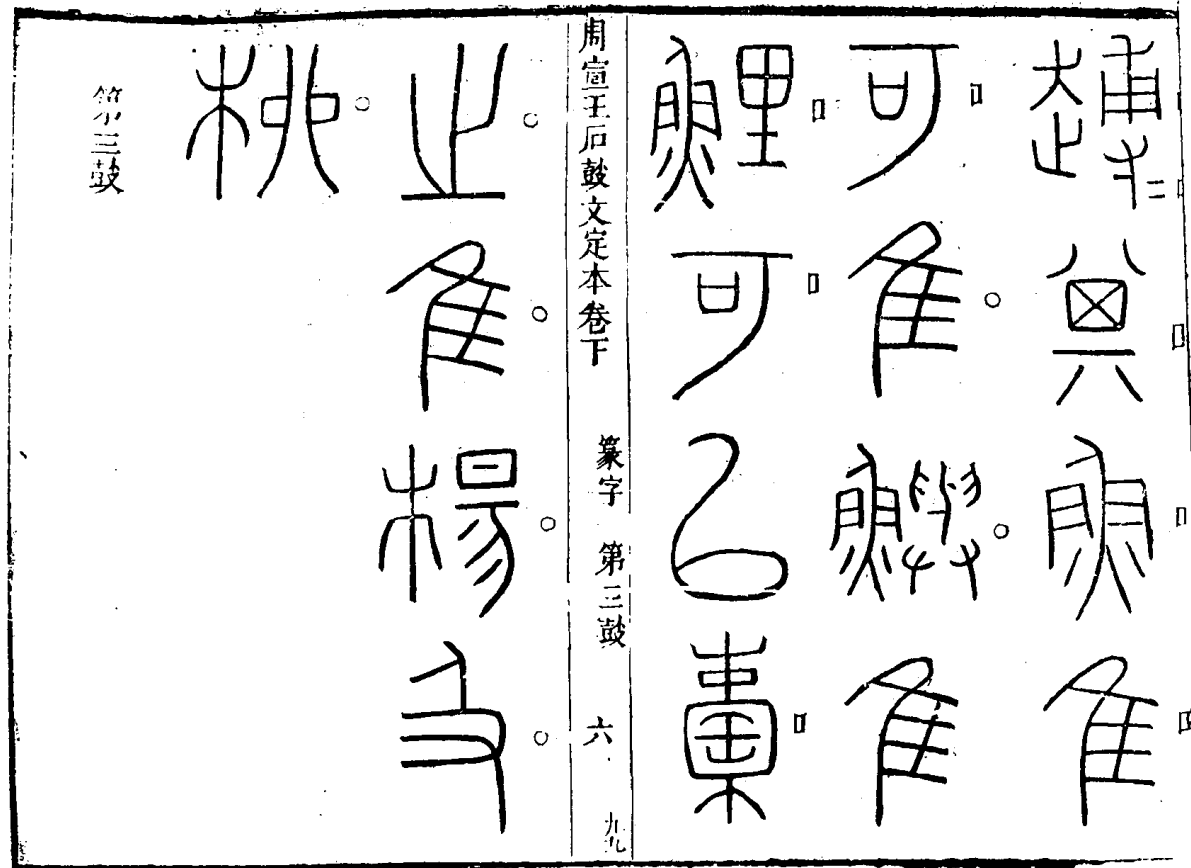 其魚隹
可隹鱮隹
鯉可㠯橐
周宣王石鼓文定本卷下 篆字 第三鼓 六
之隹楊及
柳
第三鼓